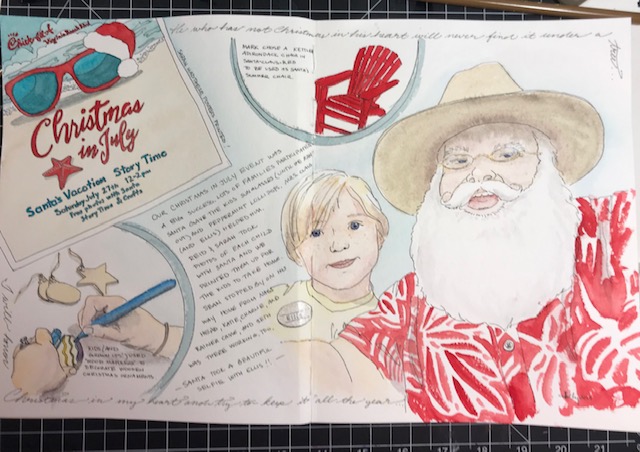 He who has not Christmas in his heart will never find it under a
tree!
Christmas
in July
Santa's Vacation Story Time
Saturday, July 27th 12-2pm
Free photos with Santa
Story Time & Crafts
MARK CHOSE A
ADIRONDACK CHAIR IN
SANTA-CLAUS-RED
TO BE USED AS SANTA'S
SUMMER CHAIR
OUR CHRISTMAS IN JULY EVENT WAS
A BIG SUCCESS. LOTS OF FAMILIES PARTICIPATED.
SANTA GAVE THE KIDS
AND PEPPERMINT LOLLIPOPS. MRS CLAUS
(AND ELLIS) HELPED HIM.
REID & SARAH TOOK
PHOTOS OF EACH CHILD
WITH SANTA AND WE
PRINTED THEM UP FOR
THE KIDS TO TAKE HOME
DEAN STOPPED BY ON HIS
WAY HOME FROM
AND
WAS THERE
- SANTA TOOK A BEAUTIFUL
SELFIE WITH ELLIS!! -
KIDS AND
USED
TO
DECORATE WOODEN
CHRISTMAS ORNAMENTS
ELLIS
I will honor
Christmas in my heart and try to keep it all the year
15 16 17 18 19 20 21